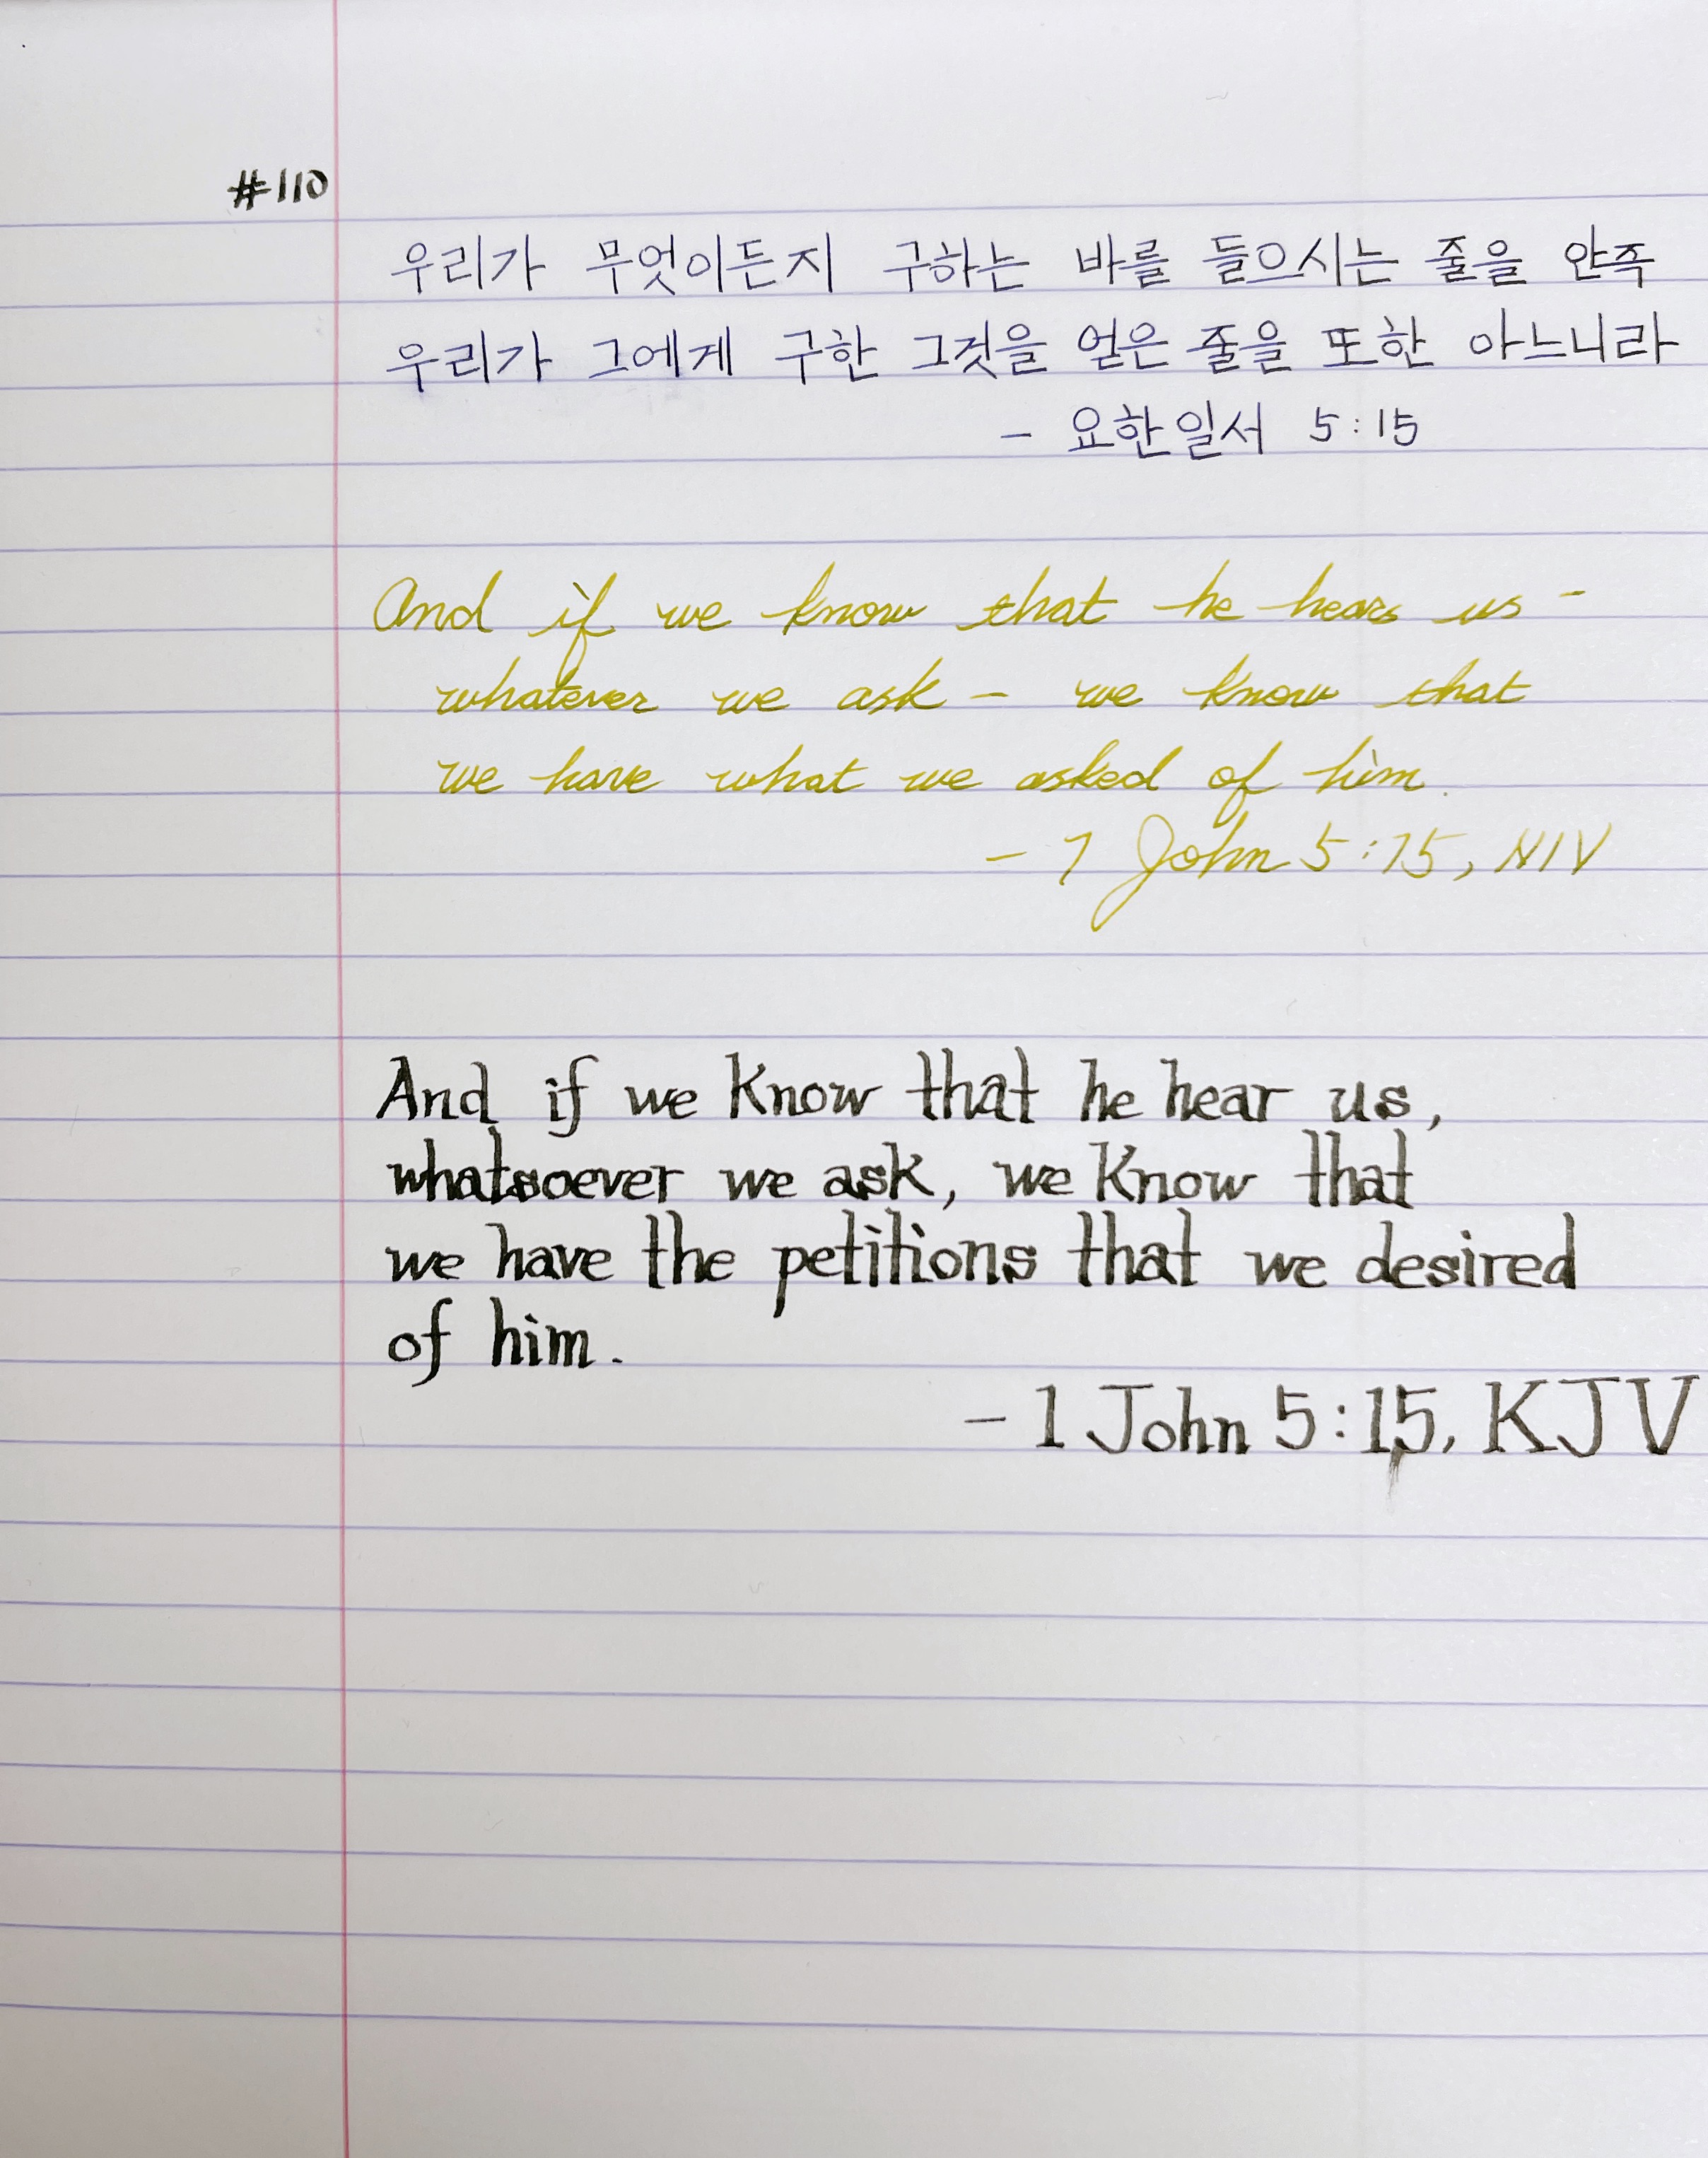 #110
우리가 무엇이든지 구하는 바를 들으시는 줄을 안즉
우리가 그에게 구한 그것을 얻은 줄을 또한 아느니라
- 요한일서 5:15
And if we know that he hears us -
whatever we ask - we know that
we have what we asked of him.
- 1 John 5:15, NIV
And if we know that he hear us,
whatsoever we ask, we know that
we have the petitions that we desired
of him.
- 1 John 5:15, KJV